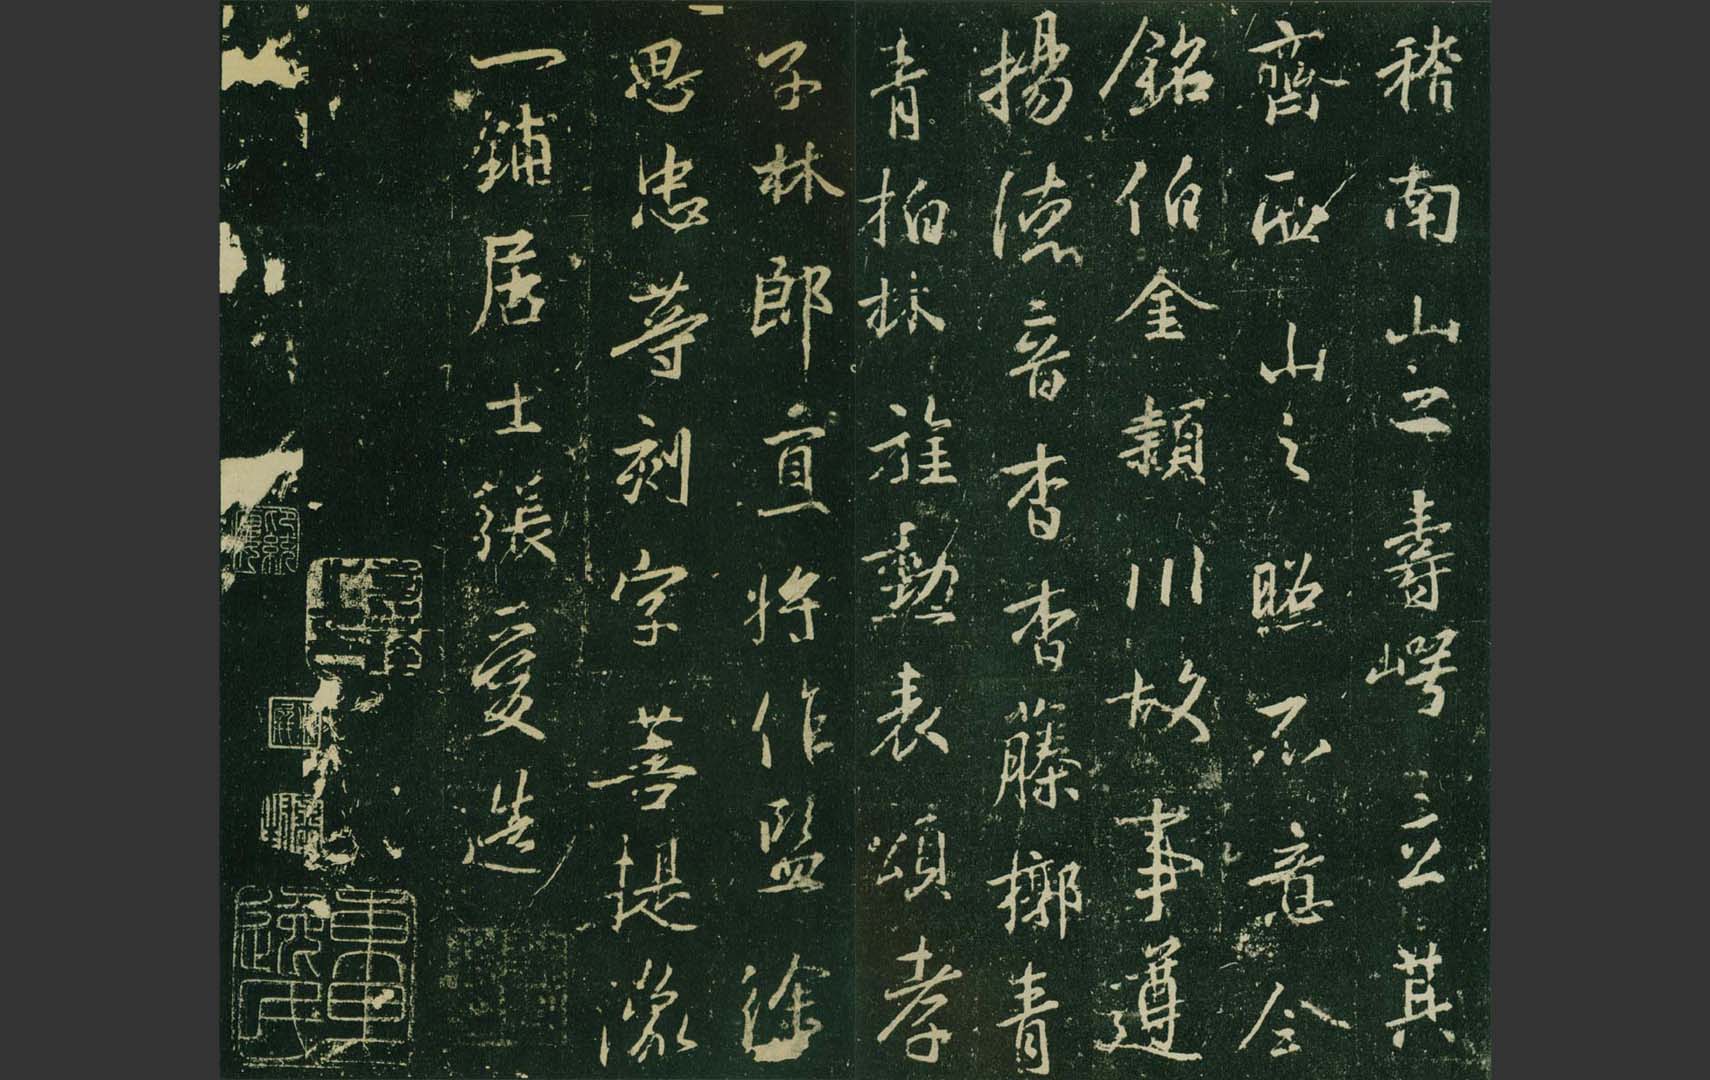 稽南山之壽崿立其
齊山之照不意
銘伯金頴川故事遵
揚德音杳杳藤槨青
青柏林旌勳表頌孝
子林郎直將作監徐
思忠等刻字菩提像
一鋪居士張愛造